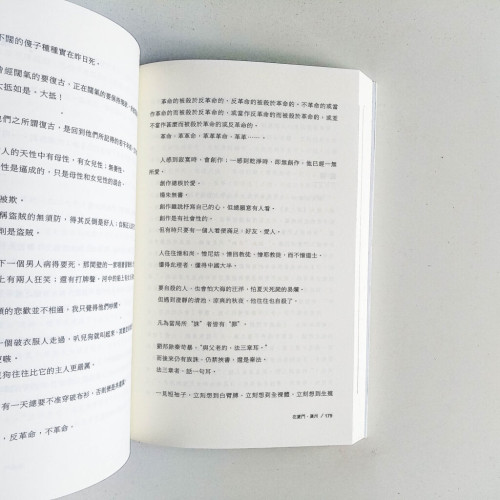 不闊的傻子種種實在昨日死。
曾經闊氣的要復古，正在闊氣的要保持現狀，
大抵如是。大抵！
他們之所謂復古，是回到他們所記得的若干年前，
人的天性中有母性，有女兒性；無妻性。
性是逼成的，只是母性和女兒性的混合。
被欺。
稱盜賊的無須防，得其反倒是好人；
則是盜賊。
下一個男人病得要死，那間壁的一家唱
上有兩人狂笑；還有打牌聲。河中的船上
類的悲歡並不相通，我只覺得他們吵鬧。
一個破衣服人走過，叭兒狗就叫起來，其實
更嗾。
兒狗往往比它的主人更嚴厲。
有一天總要不准穿破布衫，否則便是
，反革命，不革命。
革命的被殺於反革命的，反革命的被殺於革命的。不革命的或當
作革命的而被殺於反革命的，或當作反革命的而被殺於革命的，或並
不當作甚麼而被殺於革命的或反革命的。
革命，革革命，革革革命，革革……。
人感到寂寞時，會創作；一感到乾淨時，即無創作，他已經一無
所愛。
創作總根於愛。
楊朱無書。
創作雖說抒寫自己的心，但總願意有人看。
創作是有社會性的。
但有時只要有一個人看便滿足：好友，愛人。
人往往憎和尚，憎尼姑，憎回教徒，憎耶教徒，而不憎道士。
懂得此理者，懂得中國大半。
要自殺的人，也會怕大海的汪洋，怕夏天死屍的易爛。
但遇到澄靜的清池，涼爽的秋夜，他往往也自殺了。
凡為當局所“誅”者皆有“罪”。
劉邦除秦苛暴，“與父老約，法三章耳。”
而後來仍有族誅，仍禁挾書，還是秦法。
法三章者，話一句耳。
一見短袖子，立刻想到白臂膊，立刻想到全裸體，立刻想到生殖
在廈門、廣州 / 179